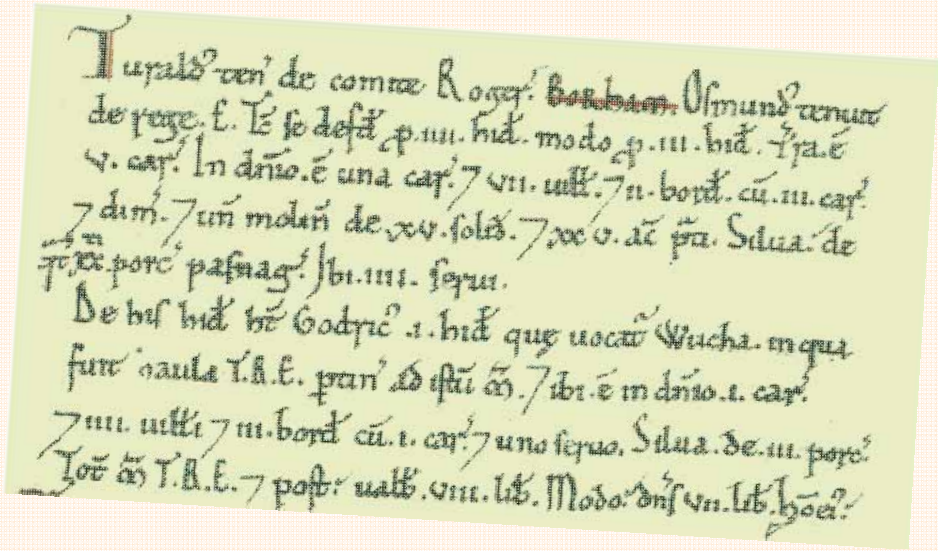 Turald⁹ ten̄ de comite Roger̄. Borham Osmund⁹ tenuit
de rege. E. T̄c se defd̄ .p. iiii. hid̄. modo .p. iii. hid̄. T̄ra. ē
v. car̄. In dn̄io. ē una car̄. ⁊ vii. uiłł. ⁊ ii. bord̄. cū. iii. car̄.
⁊ dim̄. ⁊ un̄ molin̄ de. xv. solid̄. ⁊ xx v. ac̄ p̄ti. Silua: de
porc̄ pasnaḡ. Ibi. iiii. serui.
De his hid̄ ht̄ Godric⁹ .i. hid̄ quę uocat̄ Wucha. in qua
fuit aula T.R.E. ptin̄ ad istū m̄. ⁊ ibi. ē in dn̄io. i. car̄.
⁊ iiii. uiłłi ⁊ iii. bord̄ cū. i. car̄. ⁊ uno seruo. Silua. de. iii. porc̄.
Tot̄ m̄ T.R.E. ⁊ post: ualb̄. viii. lib̄. Modo: dn̄s vii. lib̄. hōēi: